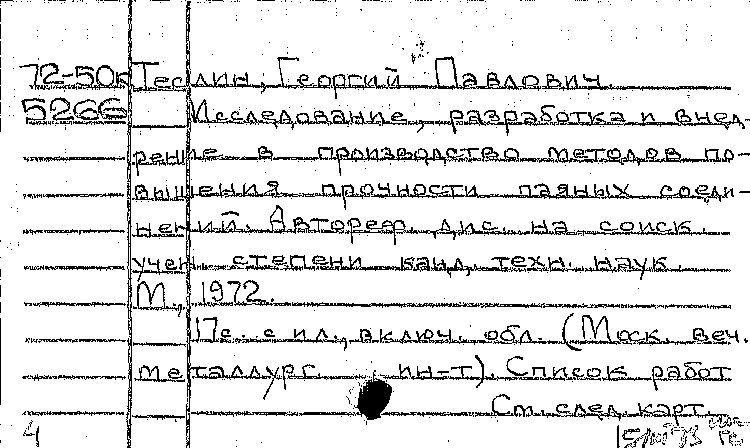 72-50к Теслин, Георгий Павлович.
5266 Исследование, разработка и внед-
рение в производство методов по-
вышения прочности паяных соеди-
нений. Автореф. дис. на соиск.
учен. степени канд. техн. наук.
М., 1972.
17с. с ил., включ. обл. (Моск. веч.
металлург. ин-т). Список работ
См. след. карт.
4